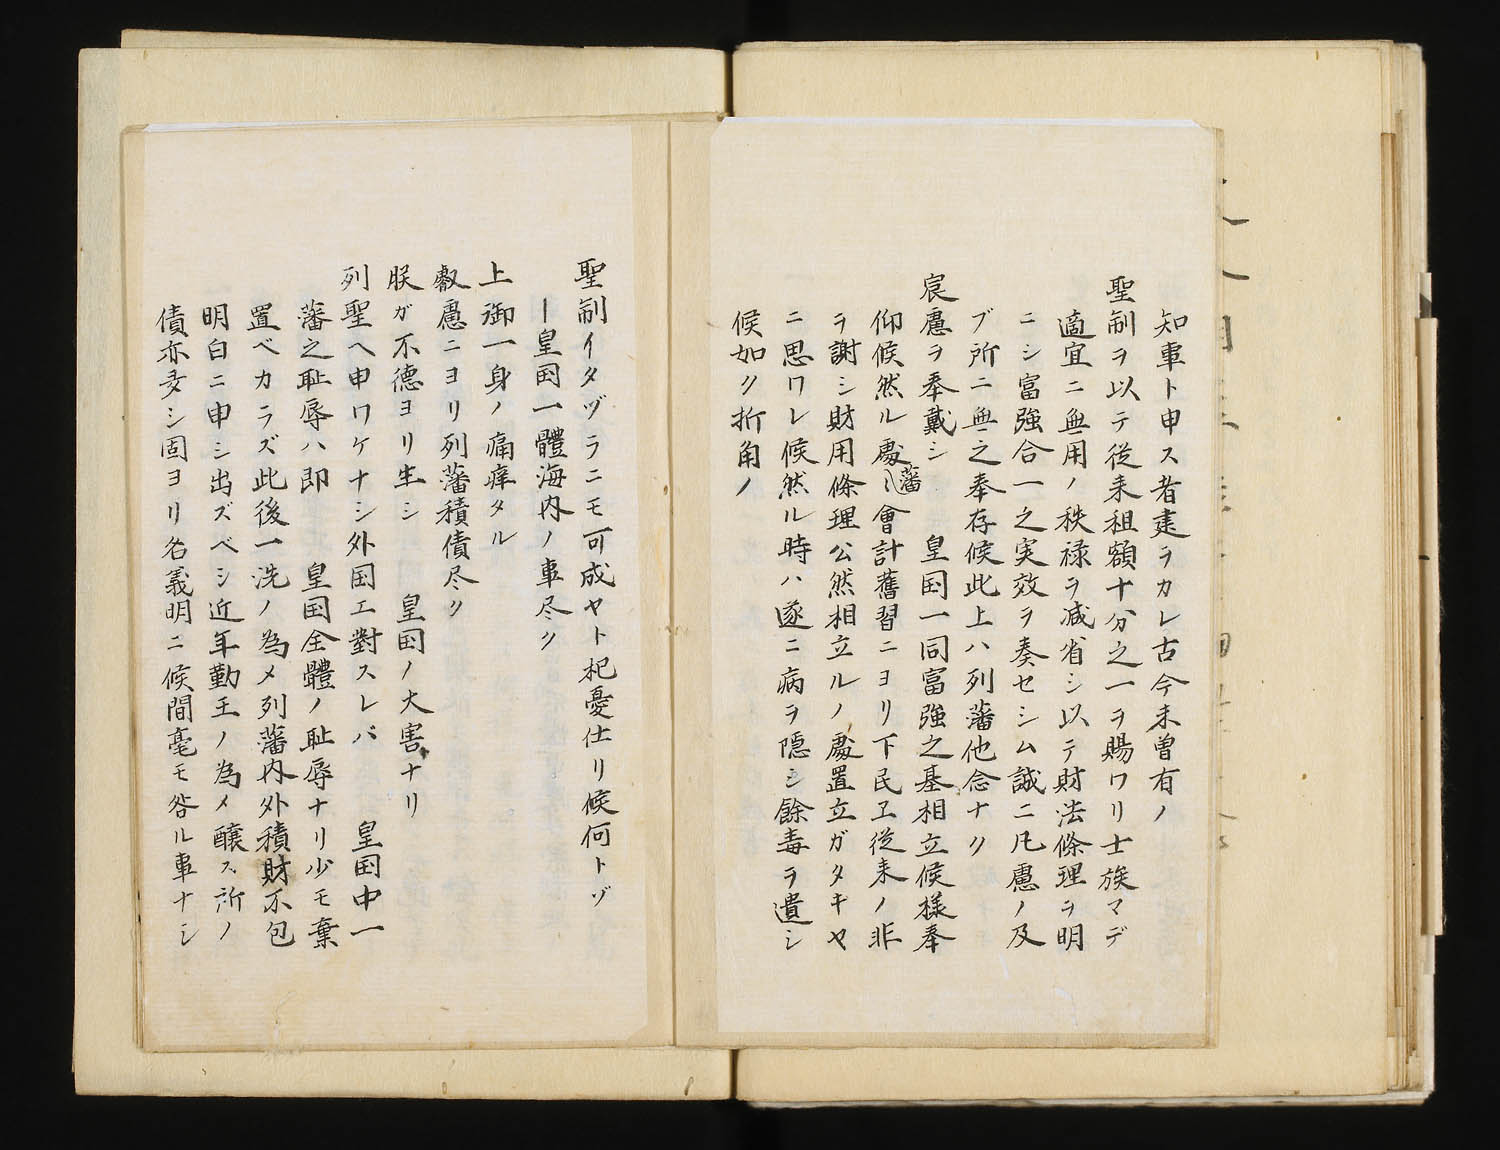 知事ト申ス者建ラカレ古今未曽有ノ
聖制ヲ以テ従来租額十分之一ヲ賜ワリ士族マデ
適宜ニ無用ノ秩禄ヲ減省シ以テ財法條理ヲ明
ニシ富強合一之実效ヲ奏セシム誠ニ凡慮ノ及
ブ所ニ無之奉存候此上ハ列藩他念ナク
宸慮ヲ奉戴シ 皇国一同富強之基相立候様奉
仰候然ル處藩〻會計舊習ニヨリ下民エ従来ノ非
ヲ謝シ財用條理公然相立ルノ處置立ガタキヤ
ニ思ワレ候然ル時ハ遂ニ病ヲ隠シ餘毒ヲ遺シ
候如ク折角ノ
聖制イタヅラニモ可成ヤト杞憂仕リ候何トゾ
一皇国一體海内ノ事尽ク
上御一身ノ痛痒タル
叡慮ニヨリ列藩積債尽ク
朕ガ不徳ヨリ生シ 皇国ノ大害ナリ
列聖ヘ申ワケナシ外国エ對スレバ 皇国中一
藩之耻辱ハ即 皇国全體ノ耻辱ナリ少モ棄
置ベカラズ此後一洗ノ為メ列藩内外積財不包
明白ニ申シ出ズベシ近年勤王ノ為メ醸ス所ノ
債亦多シ固ヨリ名義明ニ候間毫モ咎ル事ナシ